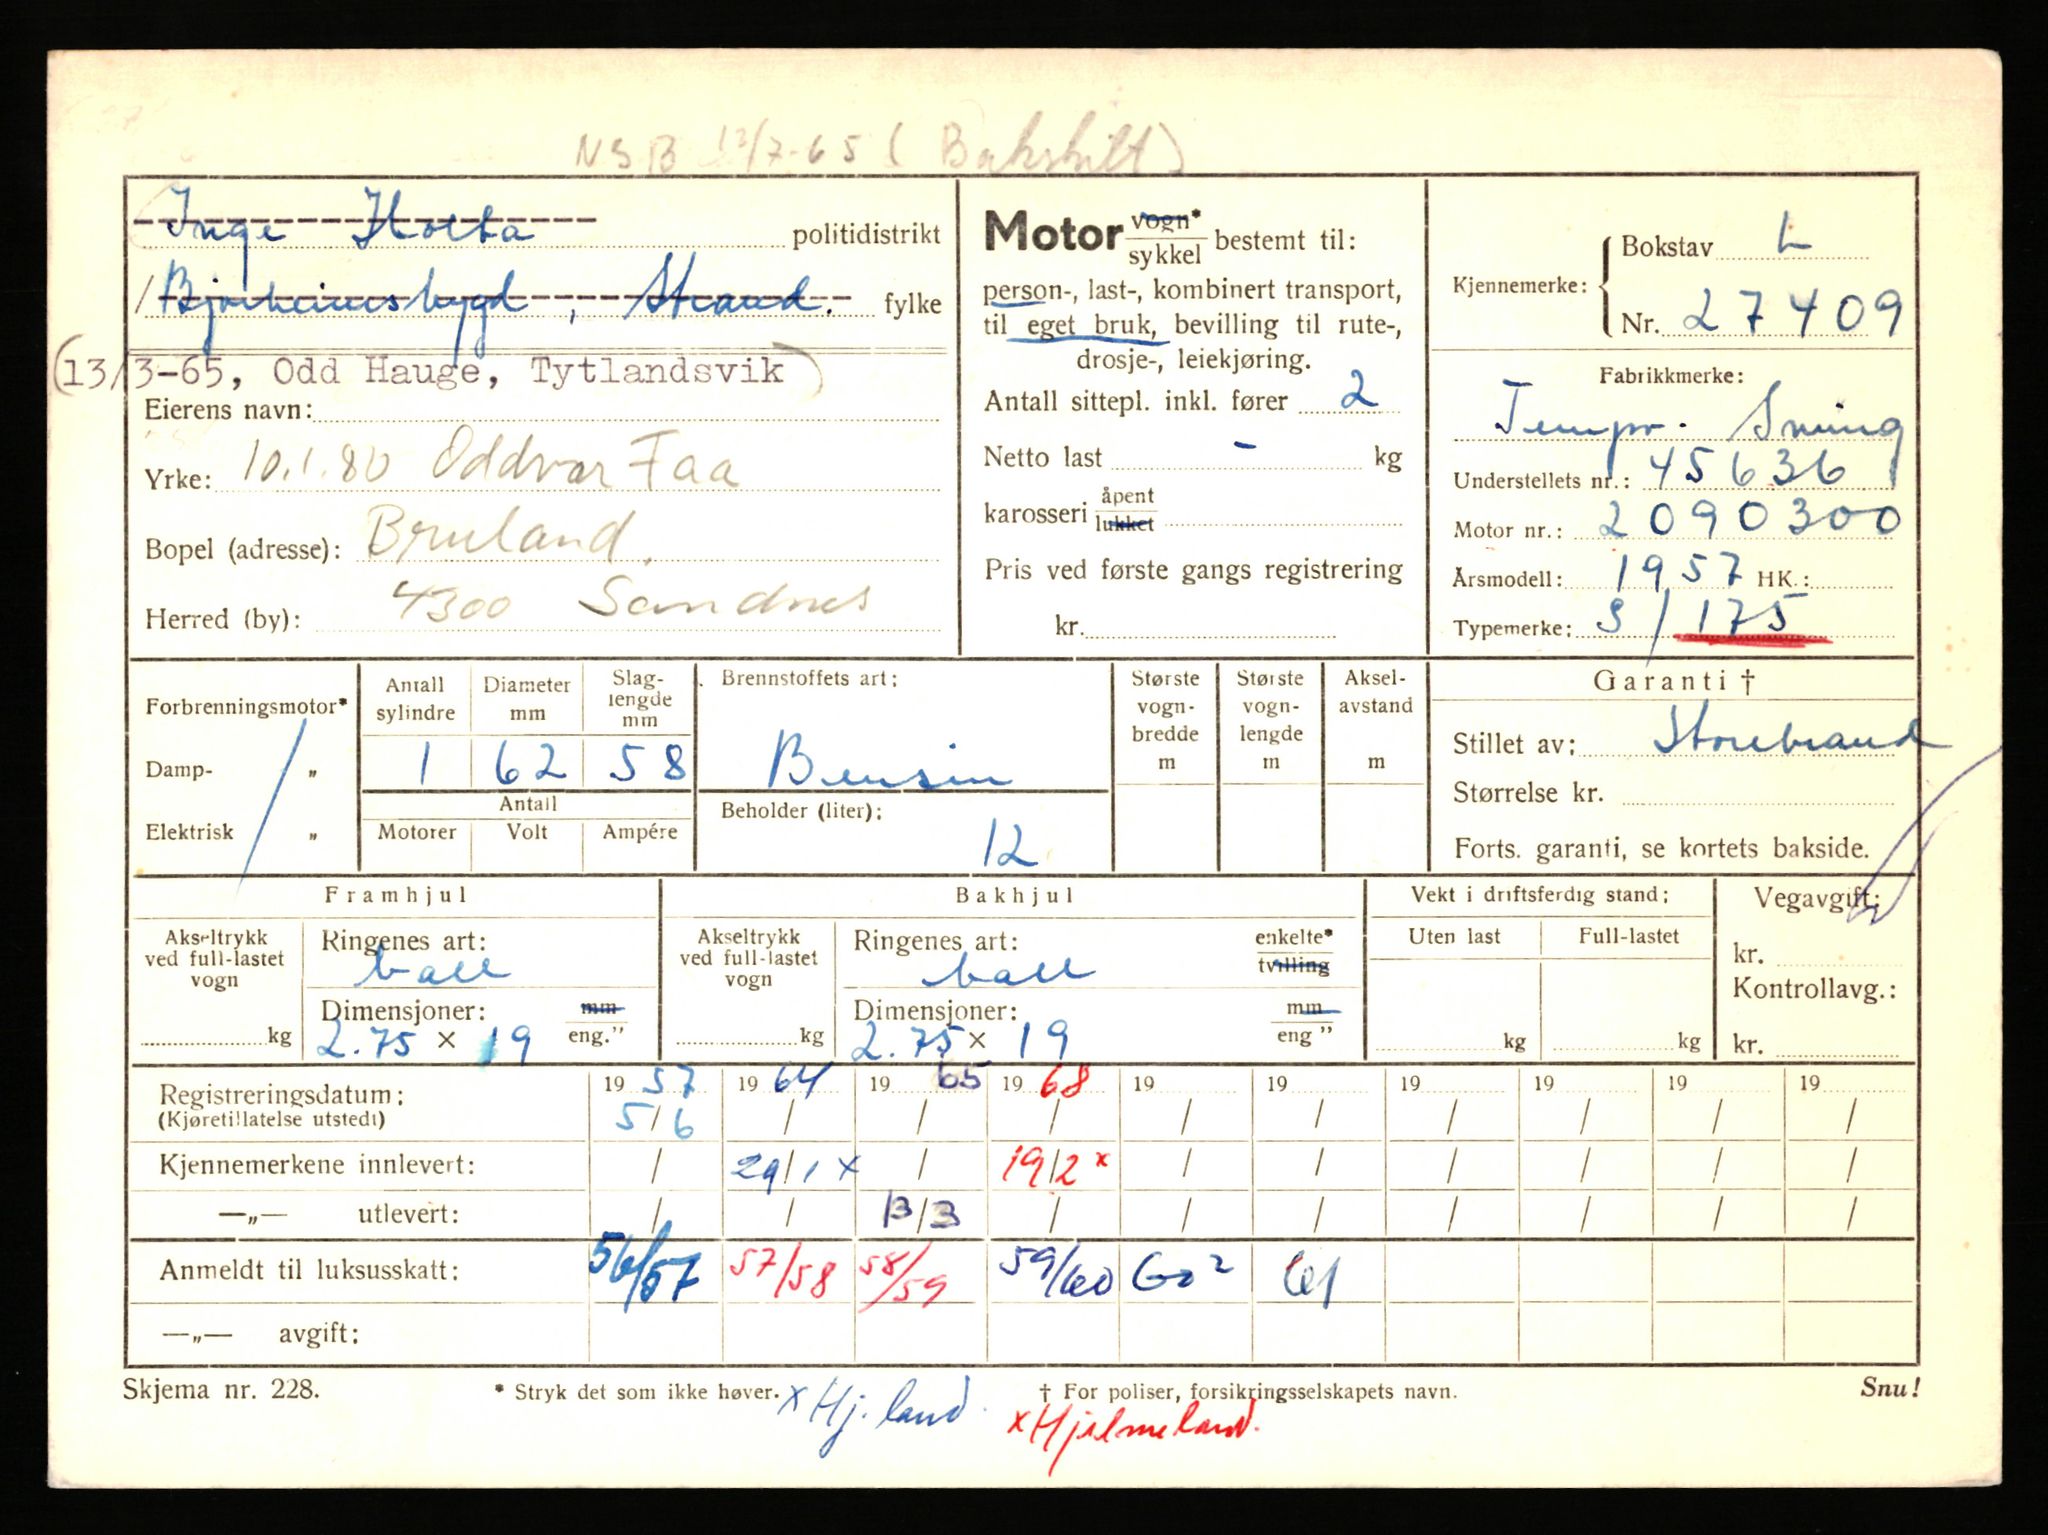 NSB 13/7-65 (Bakskilt)
Inge Holta politidistrikt
Bjørheimsbygd, Strand. fylke
(13/3-65, Odd Hauge, Tytlandsvik)
Eierens navn:
Yrke: 10.1.80 Oddvar Faa
Bopel (adresse): Bruland.
Herred (by): 4300 Sandnes
Motor vogn* sykkel bestemt til:
person-, last-, kombinert transport,
til eget bruk, bevilling til rute-,
drosje-, leiekjøring.
Antall sittepl. inkl. fører 2
Netto last - kg
karosseri åpent lukket
Pris ved første gangs registrering
kr.
Kjennemerke: Bokstav L
Nr. 27409
Fabrikkmerke:
Tempo. Swing
Understellets nr.: 45636
Motor nr.: 2090300
Årsmodell: 1957 HK.:
Typemerke: S/175
Forbrenningsmotor*
Damp- „
Elektrisk „
Antall sylindre
Diameter mm
Slag- lengde mm
1 62 58
Antall
Motorer Volt Ampére
Brennstoffets art:
Bensin
Beholder (liter):
12
Største vogn- bredde m
Største vogn- lengde m
Aksel- avstand m
Garanti †
Stillet av: Storebrand
Størrelse kr.
Forts. garanti, se kortets bakside.
Framhjul
Akseltrykk ved full-lastet vogn
kg
Ringenes art:
ball
Dimensjoner: mm eng.”
2.75 x 19
Bakhjul
Akseltrykk ved full-lastet vogn
kg
Ringenes art: enkelte* tvilling
ball
Dimensjoner: mm eng ”
2.75 x 19
Vekt i driftsferdig stand:
Uten last Full-lastet
kg kg
Vegavgift:
kr.
Kontrollavg.:
kr.
Registreringsdatum: 19 57 19 64 19 65 19 68 19 19 19 19 19 19
(Kjøretillatelse utstedt) 5/6 / / / / / / / / /
Kjennemerkene innlevert: / 29/1 x / 19/2 x / / / / / /
—„— utlevert: / / 13/3 / / / / / / /
Anmeldt til luksusskatt: 56/57 57/58 58/59 59/60 60² 61
—„— avgift:
Skjema nr. 228. * Stryk det som ikke høver. † For poliser, forsikringsselskapets navn. Snu!
x Hj.land. x Hjelmeland.